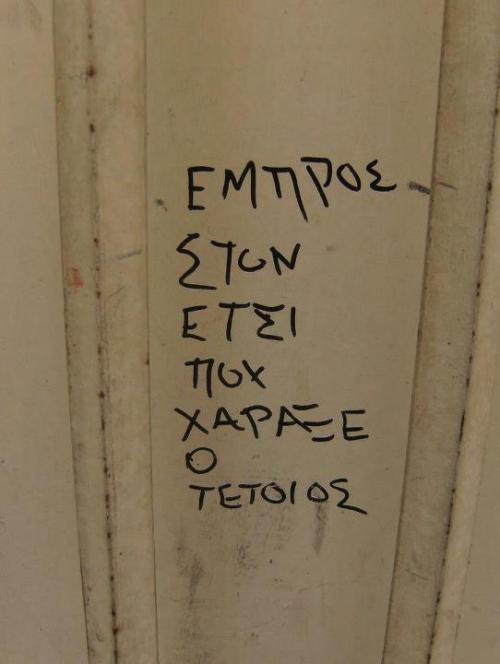 ΕΜΠΡΟΣ
ΣΤΟΝ
ΕΤΣΙ
ΠΟΥ
ΧΑΡΑΞΕ
Ο
ΤΕΤΟΙΟΣ